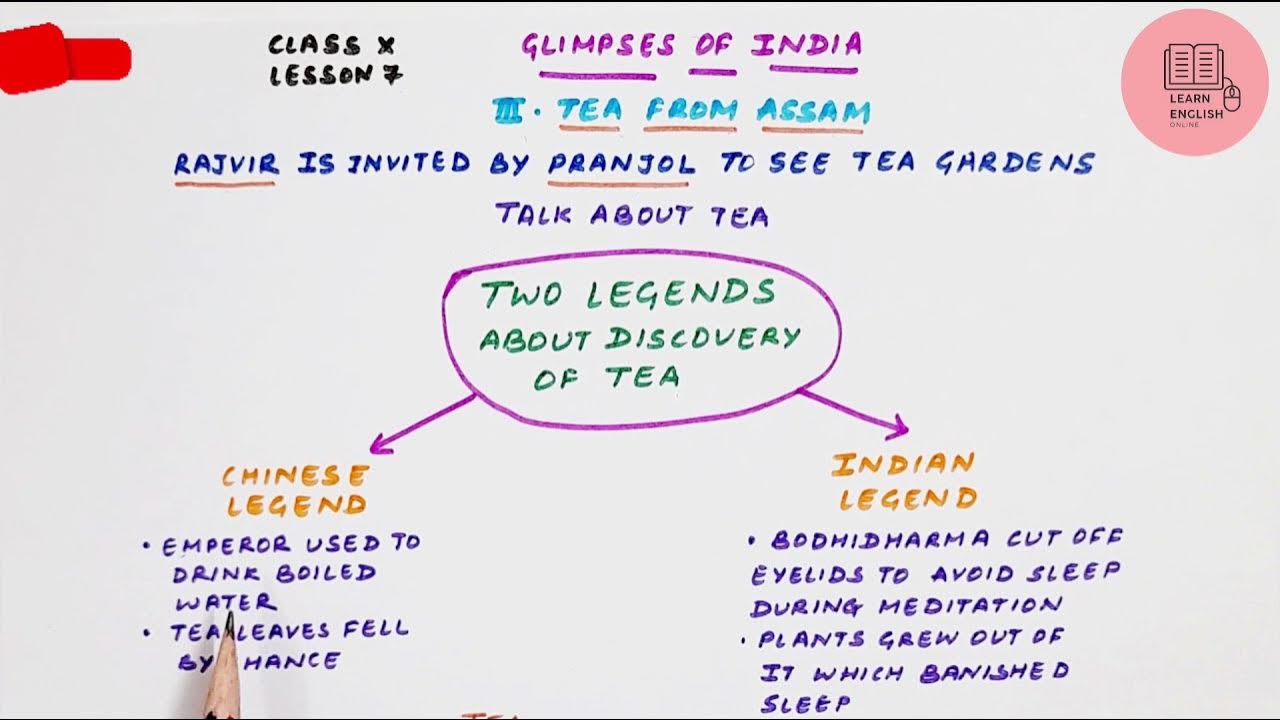 CLASS X
LESSON 7
GLIMPSES OF INDIA
III. TEA FROM ASSAM
RAJVIR IS INVITED BY PRANJOL TO SEE TEA GARDENS
TALK ABOUT TEA
TWO LEGENDS
ABOUT DISCOVERY
OF TEA
CHINESE
LEGEND
• EMPEROR USED TO
DRINK BOILED
WATER
• TEA LEAVES FELL
BY HANCE
INDIAN
LEGEND
• BODHIDHARMA CUT OFF
EYELIDS TO AVOID SLEEP
DURING MEDITATION
• PLANTS GREW OUT OF
IT WHICH BANISHED
SLEEP
LEARN
ENGLISH
ONLINE